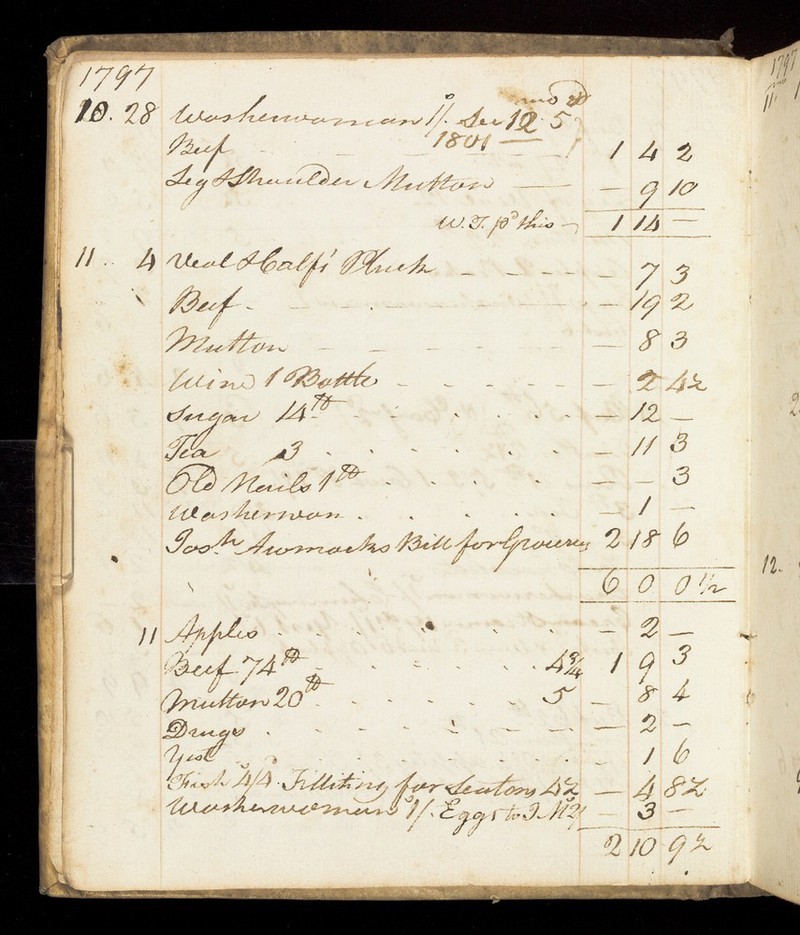 1797
10. 28 Washerwoman 1/. See 12 mo 5th
Beef 1801 — 1 4 2
Leg & Shoulder Mutton — — 9 10
W. T. pd this 1 14 —
11 .. 4 Veal & Calf's Pluck - - - - — 7 3
Beef - — 19 2
Mutton — 8 3
Wine 1 Bottle - - - - - — 2 4½
Sugar 14lb — 12 —
Tea 3 — 11 3
Old Nails 1lb — — 3
Washerwon . . . . . — 1 —
Josh. Bill for Groceries 2 18 6
6 0 0 1/2
11 Apples — 2 —
Beef 74lb 4¾ 1 9 3
Mutton 20lb 5 — 8 4
Drugs — 2 —
Yest — 1 6
Fish 4/4 Filliting for Seatons 4½ — 4 8½
Washerwoman 1/. Eggs to J. M 2/ — 3 —
2 10 9½
1797
11.
2
12.